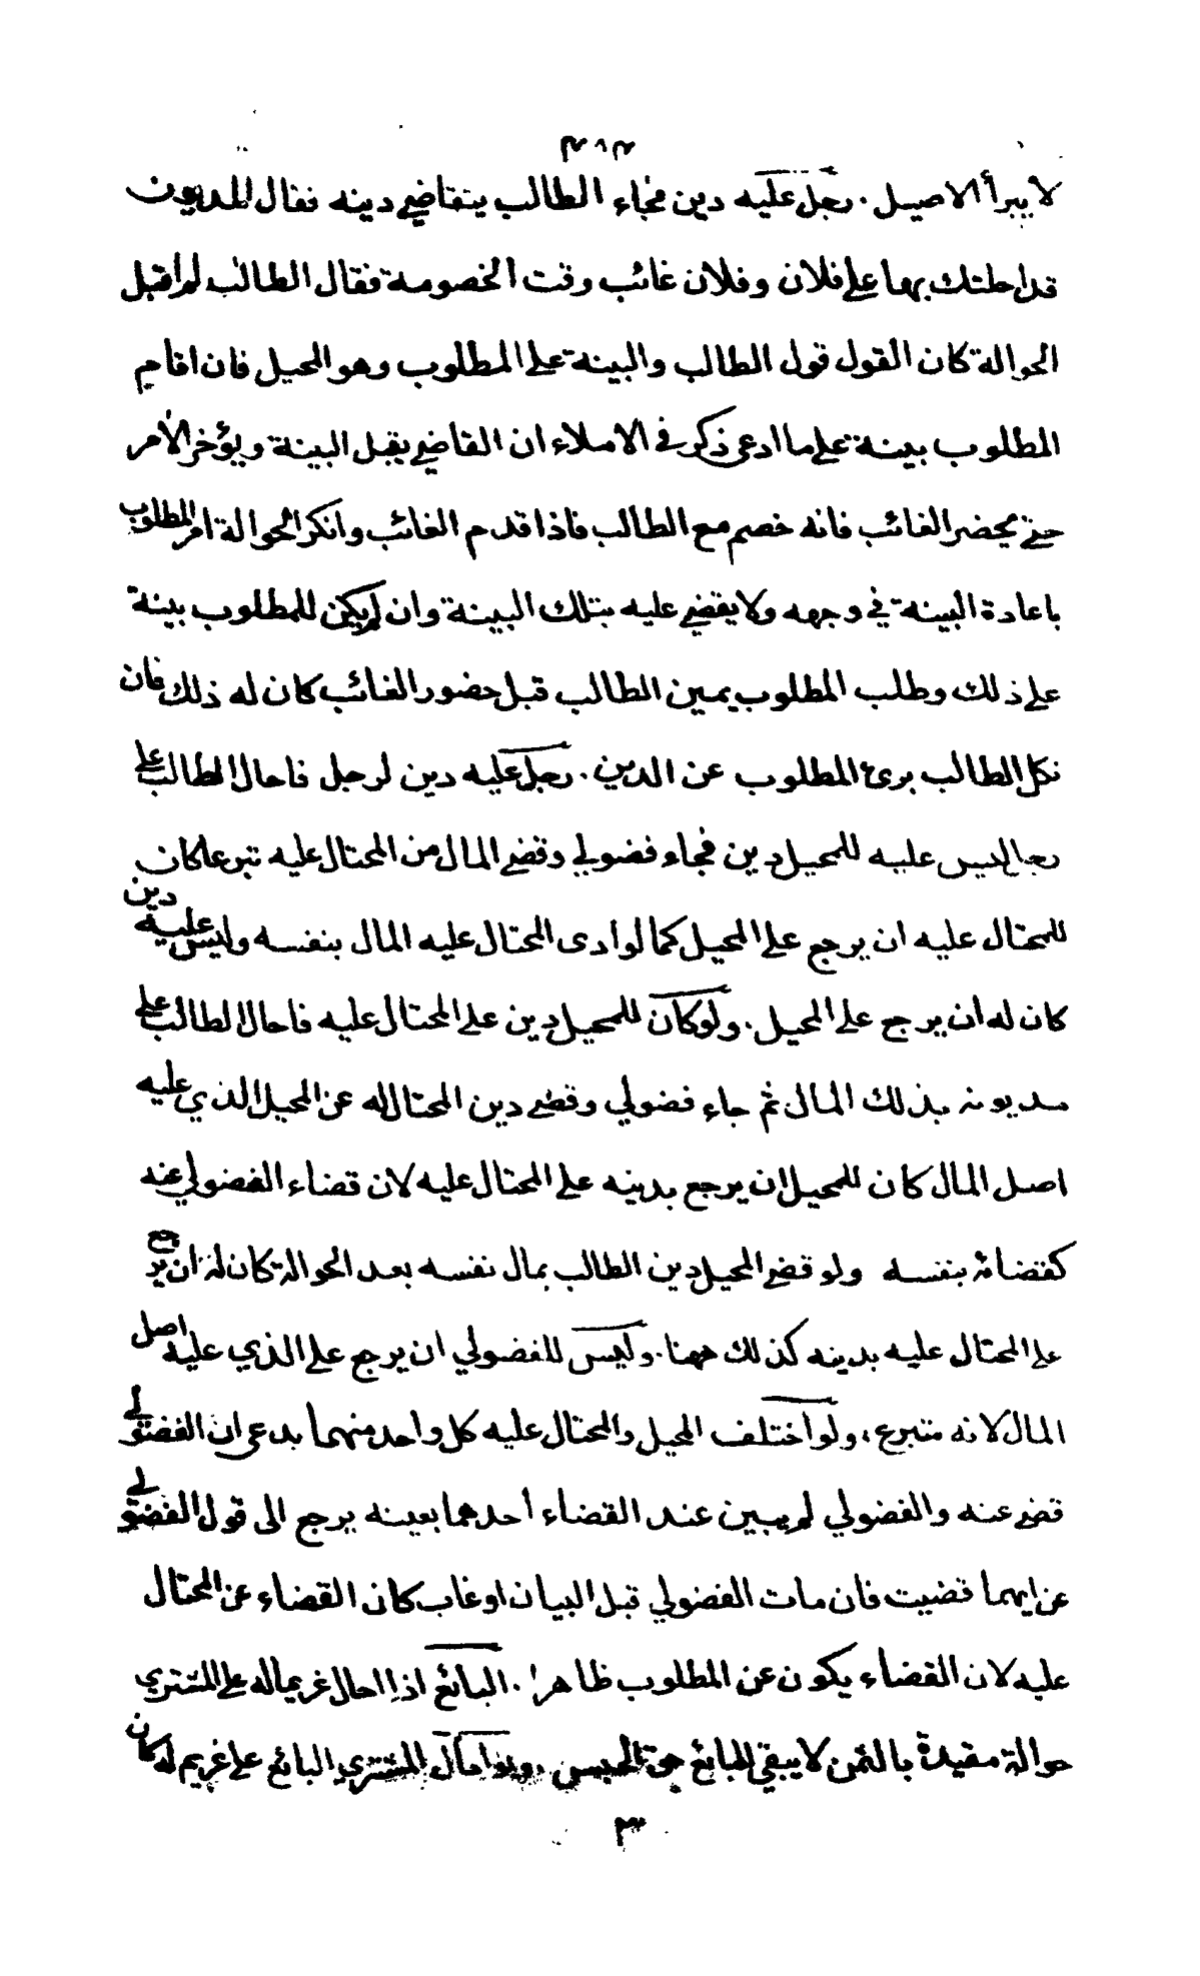 ٣١٣
لا يبرأ الاصيل . رجل عليه دين فجاء الطالب يتقاضى دينه فقال المديون
قد احلتك بها على فلان وفلان غائب وقت الخصومة فقال الطالب لم اقبل
الحوالة كان القول قول الطالب والبينة على المطلوب وهو المحيل فان اقام
المطلوب بينة على ما ادعى ذكر في الاملاء ان القاضي يقبل البينة ويؤخر الأمر
حتى يحضر الغائب فانه خصم مع الطالب فاذا قدم الغائب وانكر الحوالة امر المطلوب
باعادة البينة في وجهه ولا يقضي عليه بتلك البينة وان لم يكن للمطلوب بينة
على ذلك وطلب المطلوب يمين الطالب قبل حضور الغائب كان له ذلك فان
نكل الطالب برئ المطلوب عن الدين . رجل عليه دين لرجل فاحال الطالب على
رجل ليس عليه للمحيل دين فجاء فضولي وقضى المال من المحتال عليه تبرعا كان
للمحتال عليه ان يرجع على المحيل كما لو ادى المحتال عليه المال بنفسه وليس عليه دين
كان له ان يرجع على المحيل . ولو كان للمحيل دين على المحتال عليه فاحال الطالب على
مديونه بذلك المال ثم جاء فضولي وقضى دين المحتال له عن المحيل الذي عليه
اصل المال كان للمحيل ان يرجع بدينه على المحتال عليه لان قضاء الفضولي عنه
كقضائه بنفسه ولو قضى المحيل دين الطالب بمال نفسه بعد الحوالة كان له ان يرجع
على المحتال عليه بدينه كذلك ههنا . وليس للفضولي ان يرجع على الذي عليه اصل
المال لانه متبرع . ولو اختلف المحيل والمحتال عليه كل واحد منهما يدعي ان الفضولي
قضى عنه والفضولي لم يبين عند القضاء أحدهما بعينه يرجع الى قول الفضولي
عن ايهما قضيت فان مات الفضولي قبل البيان او غاب كان القضاء عن المحتال
عليه لان القضاء يكون عن المطلوب ظاهرا . البائع اذا احال غريما له على المشتري
حوالة مقيدة بالثمن لا يبقى للبائع حق الحبس . ولو احال المشتري البائع على غريم له كان
٣